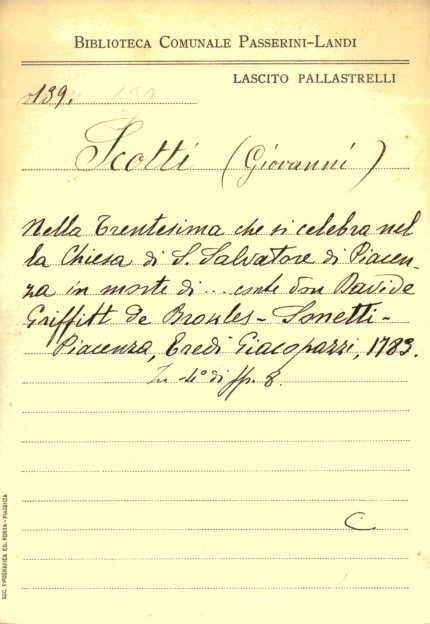 BIBLIOTECA COMUNALE PASSERINI-LANDI
LASCITO PALLASTRELLI
139.
Scotti (Giovanni)
Nella Trentesima che si celebra nel
la Chiesa di S. Salvatore di Piacen-
za in morte di ... conte don Davide
Griffitt de Browles - Sonetti -
Piacenza, Eredi Giacopazzi, 1783.
In 4° di pp. 8.
C
SOC. TIPOGRAFICA ED. PORTA - PIACENZA